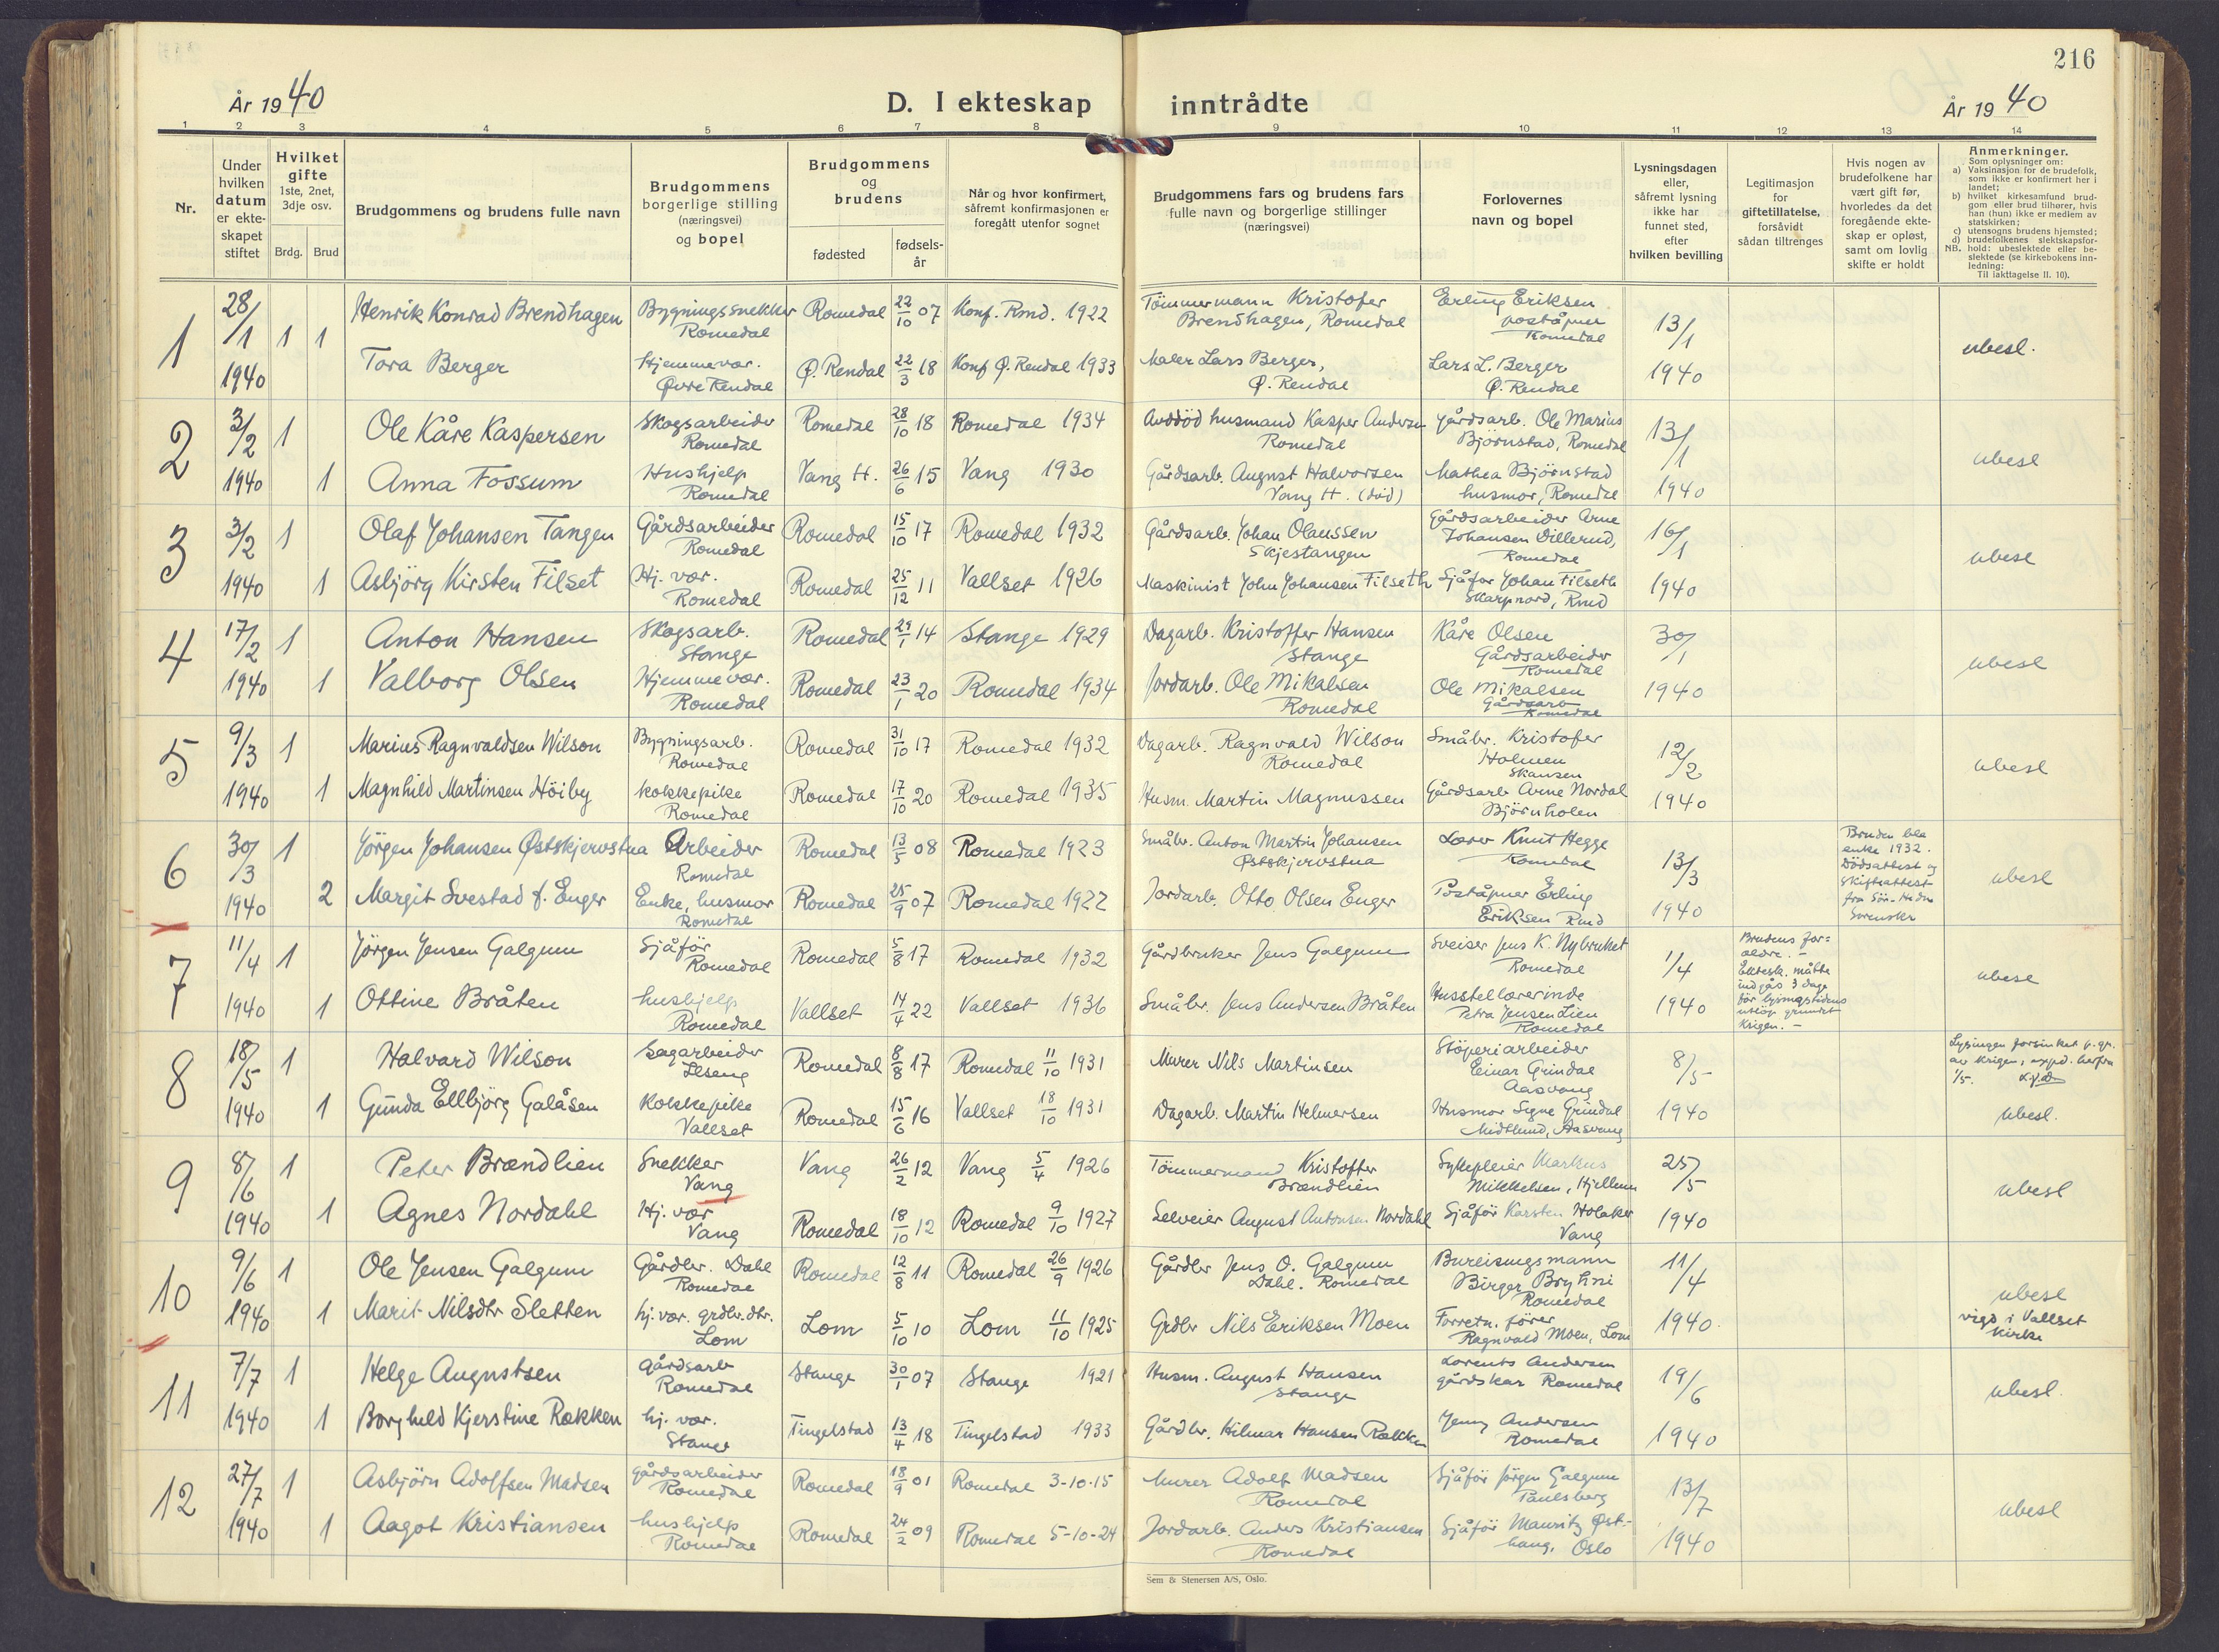 216
År 1940
D. I ekteskap inntrådte
År 1940
1 2 3 4 5 6 7 8 9 10 11 12 13 14
Nr.
Under
hvilken
datum
er ekte-
skapet
stiftet
Hvilket
gifte
1ste, 2net,
3dje osv.
Brdg. Brud
Brudgommens og brudens fulle navn
Brudgommens
borgerlige stilling
(næringsvei)
og bopel
Brudgommens
og
brudens
fødested
fødsels-
år
Når og hvor konfirmert,
såfremt konfirmasjonen er
foregått utenfor sognet
Brudgommens fars og brudens fars
fulle navn og borgerlige stillinger
(næringsvei)
Forlovernes
navn og bopel
Lysningsdagen
eller,
såfremt lysning
ikke har
funnet sted,
efter
hvilken bevilling
Legitimasjon
for
giftetillatelse,
forsåvidt
sådan tiltrenges
Hvis nogen av
brudefolkene har
vært gift før,
hvorledes da det
foregående ekte-
skap er opløst,
samt om lovlig
skifte er holdt
Anmerkninger.
Som oplysninger om:
a) Vaksinasjon for de brudefolk,
som ikke er konfirmert her i
landet;
b) hvilket kirkesamfund brud-
gom eller brud tilhører, hvis
han (hun) ikke er medlem av
statskirken;
c) utensogns brudens hjemsted;
d) brudefolkenes slektskapsfor-
NB. hold: ubeslektede eller be-
slektede (se kirkebokens inn-
ledning:
Til iakttagelse II. 10).
1
28/1
1940
1 1
Henrik Konrad Brendhagen
Bygningssnekker
Romedal
Romedal 22/10 07 Konf. Rmd. 1922
Tömmermann Kristofer
Brendhagen, Romedal
Erling Eriksen
poståpner
Romedal
13/1
1940
Tora Berger
Hjemmevær.
Øvre Rendal
Ø. Rendal 22/3 18 Konf Ø. Rendal 1933
Maler Lars Berger,
Ø. Rendal
Lars L. Berger
Ø. Rendal
ubesl.
2
3/2
1940
1
Ole Kåre Kaspersen
Skogsarbeider
Romedal
Romedal 28/10 18 Romedal 1934
Avdöd husmand Kasper Andersen
Romedal
Gårdsarb. Ole Marius
Björnstad, Romedal
13/1
1940
1
Anna Fossum
Hushjelp
Romedal
Vang H. 26/6 15 Vang 1930
Gårdsarb. August Halvorsen
Vang H. (död)
Mathea Björnstad
husmor, Romedal
ubesl
3
3/2
1940
1
Olaf Johansen Tangen
Gårdsarbeider
Romedal
Romedal 15/10 17 Romedal 1932
Gårdsarb. Johan Olaussen
Skjestangen
Gårdsarbeider Arne
Johansen Dillerud,
Romedal
16/1
1940
1
Asbjörg Kirsten Filset
Hj. vær.
Romedal
Romedal 25/12 11 Vallset 1926
Maskinist John Johansen Filseth
Sjåför Johan Filseth
Skarpnord, Rmd
ubesl
4
17/2
1940
1
Anton Hansen
Skogsarb.
Stange
Romedal 29/1 14 Stange 1929
Dagarb. Kristoffer Hansen
Stange
Kåre Olsen
Gårdsarbeider
Romedal
30/1
1940
1
Valborg Olsen
Hjemmevær.
Romedal
Romedal 23/1 20 Romedal 1934
Jordarb. Ole Mikalsen
Romedal
Ole Mikalsen
Gårdsarb
Romedal
ubesl
5
9/3
1940
1
Marius Ragnvaldsen Wilson
Bygningsarb.
Romedal
Romedal 31/10 17 Romedal 1932
Dagarb. Ragnvald Wilson
Romedal
Småbr. Kristofer
Holmen
Skansen
12/2
1940
1
Magnhild Martinsen Höiby
kokkepike
Romedal
Romedal 17/10 20 Romedal 1935
Husm. Martin Magnussen
Gårdsarb Arne Nordal
Björnholen
ubesl
6
30/3
1940
1
Jörgen Johansen Østskjervstua
Arbeider
Romedal
Romedal 13/5 08 Romedal 1923
Småbr. Anton Martin Johansen
Østskjervstua
Lærer Knut Hegge
Romedal
13/3
1940
Bruden ble
enke 1932.
Dödsattest og
Skifteattest
fra Sör-Hedm
Sorensker
2
Margit Svestad f. Enger
Enke, husmor
Romedal
Romedal 25/9 07 Romedal 1922
Jordarb. Otto Olsen Enger
Poståpner Erling
Eriksen Rmd
ubesl
7
11/4
1940
1
Jörgen Jensen Galgum
Sjåför
Romedal
Romedal 5/8 17 Romedal 1932
Gårdbruker Jens Galgum
Sveiser Jens K. Nybruket
Romedal
1/4
1940
Brudens for=
eldre. -
Ektesk. måtte
indgås 3 dage
för lysningstidens
utlöp grundet
Krigen. -
1
Ottine Bråten
hushjelp
Romedal
Vallset 14/4 22 Vallset 1936
Småbr. Jens Andersen Bråten
Husstellærerinde
Petra Jensen Lien
Romedal
ubesl
8
18/5
1940
1
Halvard Wilson
Sagarbeider
Ilseng
Romedal 8/8 17 Romedal 11/10 1931
Murer Nils Martinsen
Stöperiarbeider
Einar Grindal
Aasvang
8/5
1940
Lysingen forsinket p. gr.
av krigen, exped. herfra
1/5.
1
Gunda Ellbjörg Galåsen
Kokkepike
Vallset
Romedal 15/6 16 Vallset 18/10 1931
Dagarb. Martin Helmersen
Husmor Signe Grindal
Midtlund, Aasvang
ubesl.
9
8/6
1940
1
Peter Brændlien
Snekker
Vang
Vang 26/2 12 Vang 5/4 1926
Tömmermand Kristoffer
Brændlien
Sykepleier Markus
Mikkelsen, Hjellum
25/5
1940
1
Agnes Nordahl
Hj. vær
Vang
Romedal 18/10 12 Romedal 9/10 1927
Selveier August Antonsen Nordahl
Sjåför Karsten Holaker
Vang
ubesl
10
9/6
1940
1
Ole Jensen Galgum
Gårdbr. Dahl
Romedal
Romedal 12/8 11 Romedal 26/9 1926
Gårdbr Jens O. Galgum
Dahl. Romedal
Bureisingsmann
Birger Bryhni
Romedal
11/4
1940
1
Marit Nilsdtr Sletten
hj. vær. grdbr. dtr.
Lom
Lom 5/10 10 Lom 11/10 1925
Grdbr Nils Eriksen Moen
Forretn. förer
Ragnvald Moen, Lom
ubesl
vigd i Vallset
kirke
11
7/7
1940
1
Helge Augustsen
gårdsarb
Romedal
Stange 30/1 07 Stange 1921
Husm. August Hansen
Stange
Lorents Andersen
gårdskar Romedal
19/6
1940
1
Borghild Kjerstine Rækken
hj. vær.
Stange
Tingelstad 13/4 18 Tingelstad 1933
Gårdbr. Hilmar Hansen Rækken
Jenny Andersen
Romedal
ubesl.
12
27/7
1940
1
Asbjörn Adolfsen Madsen
gårdsarbeider
Romedal
Romedal 18/9 01 Romedal 3-10-15
Murer Adolf Madsen
Romedal
Sjåför Jörgen Galgum
Paulsberg
13/7
1940
1
Aagot Kristiansen
hushjelp
Romedal
Romedal 24/2 09 Romedal 5-10-24
Jordarb. Anders Kristiansen
Romedal
Sjåför Mauritz Øst-
haug, Oslo
ubesl
Sem & Stenersen A/S, Oslo.